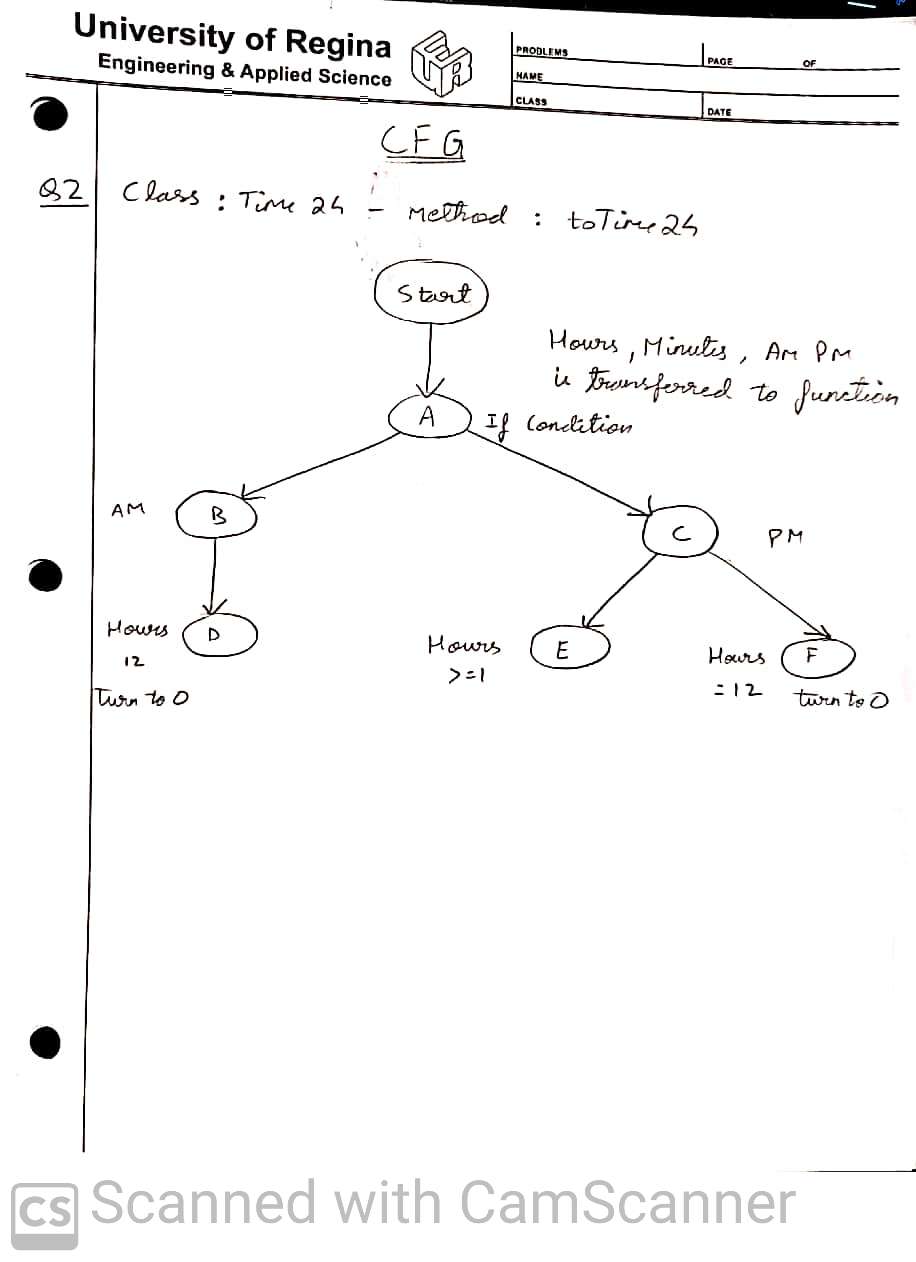 University of Regina
Engineering & Applied Science
PROBLEMS
NAME
CLASS
PAGE OF
DATE
CFG
Q2 Class : Time 24 - Method : toTime24
Start
Hours, Minutes, AM PM
is transferred to function
A If Condition
AM B
C PM
Hours D
12
Turn to 0
Hours E
>=1
Hours F
=12 turn to 0
CS Scanned with CamScanner